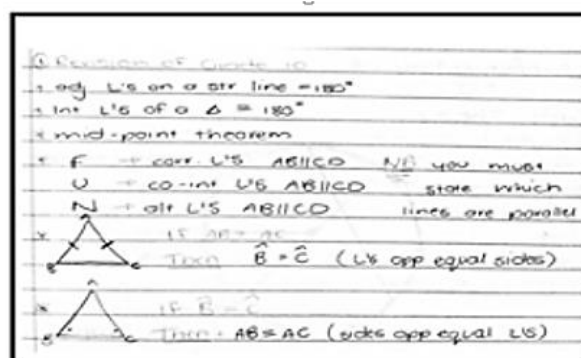 ① Revision of Grade 10
* adj L's on a str line = 180°
* Int L's of a Δ = 180°
* mid-point theorem
* F → corr. L'S AB||CD NB you must
U → co-int L'S AB||CD state which
N → alt L'S AB||CD lines are parallel
* A IF AB = AC
B C Then B̂ = Ĉ (L's opp equal sides)
* A IF B̂ = Ĉ
B C Then AB = AC (sides opp equal L's)